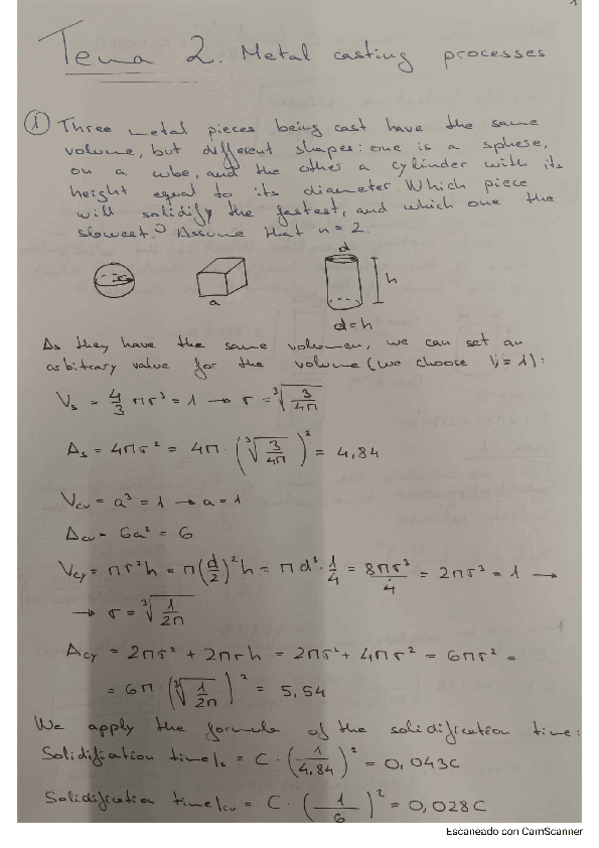 1
Tema 2. Metal casting processes
① Three metal pieces being cast have the same
volume, but different shapes: one is a sphere,
on a cube, and the other a cylinder with its
height equal to its diameter. Which piece
will solidify the fastest, and which one the
slowest? Assume that n=2.
d
h
a
d=h
As they have the same volumen, we can set an
arbitrary value for the volume (we choose Vi = 1):
Vs = 4/3 πr³ = 1 → r = ∛(3/4π)
As = 4πr² = 4π · (∛(3/4π))² = 4,84
Vcu = a³ = 1 → a = 1
Acu = 6a² = 6
Vcy = πr²h = π(d/2)²h = πd³·1/4 = 8πr³/4 = 2πr³ = 1 →
→ r = ∛(1/2π)
Acy = 2πr² + 2πrh = 2πr² + 4πr² = 6πr² =
= 6π · (∛(1/2π))² = 5,54
We apply the formula of the solidification time:
Solidification time|s = C · (1/4,84)² = 0,043C
Solidification time|cu = C · (1/6)² = 0,028C
Escaneado con CamScanner